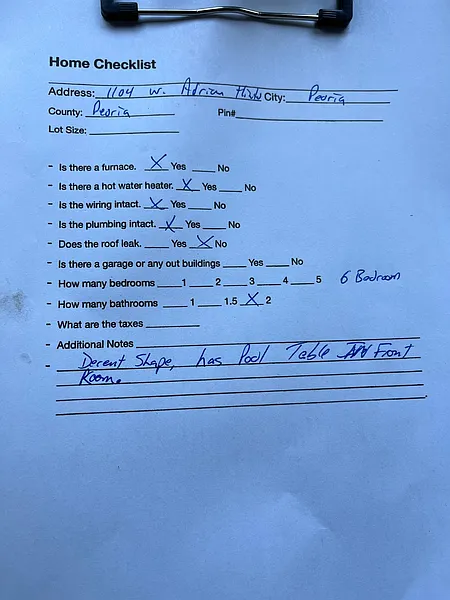 Home Checklist
Address: 1104 W. Adrian City: Peoria
County: Peoria Pin#
Lot Size:
- Is there a furnace. X Yes ___ No
- Is there a hot water heater. X Yes ___ No
- Is the wiring intact. X Yes ___ No
- Is the plumbing intact. X Yes ___ No
- Does the roof leak. ___ Yes X No
- Is there a garage or any out buildings ___ Yes ___ No
- How many bedrooms ___ 1 ___ 2 ___ 3 ___ 4 ___ 5 6 Bedroom
- How many bathrooms ___ 1 ___ 1.5 X 2
- What are the taxes
- Additional Notes
- Decent Shape, has Pool Table IN Front
Room.